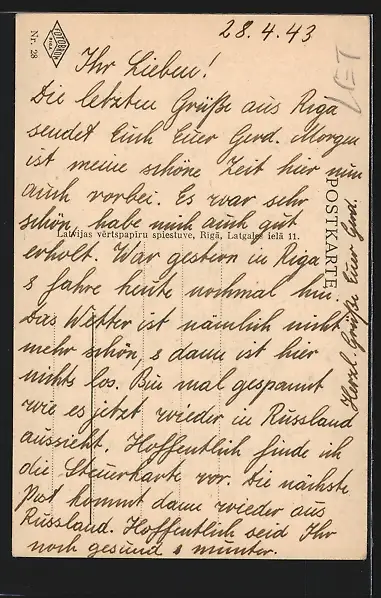 28.4.43
Nr. 28
FOTOBROM
RIGA
LET
Ihr Lieben!
Die letzten Grüße aus Riga
sendet Euch Euer Gerd. Morgen
ist meine schöne Zeit hier nun
auch vorbei. Es war sehr
schön, habe mich auch gut
Latvijas vērtspapīru spiestuve, Rīgā, Latgales ielā 11.
erholt. War gestern in Riga
& fahre heute nochmal hin.
Das Wetter ist nämlich nicht
mehr schön, & dann ist hier
nichts los. Bin mal gespannt
wie es jetzt wieder in Russland
aussieht. Hoffentlich finde ich
die Steuerkarte vor. Die nächste
Post kommt dann wieder aus
Russland. Hoffentlich seid Ihr
noch gesund & munter.
POSTKARTE
Herzl. Grüße Euer Gerd.